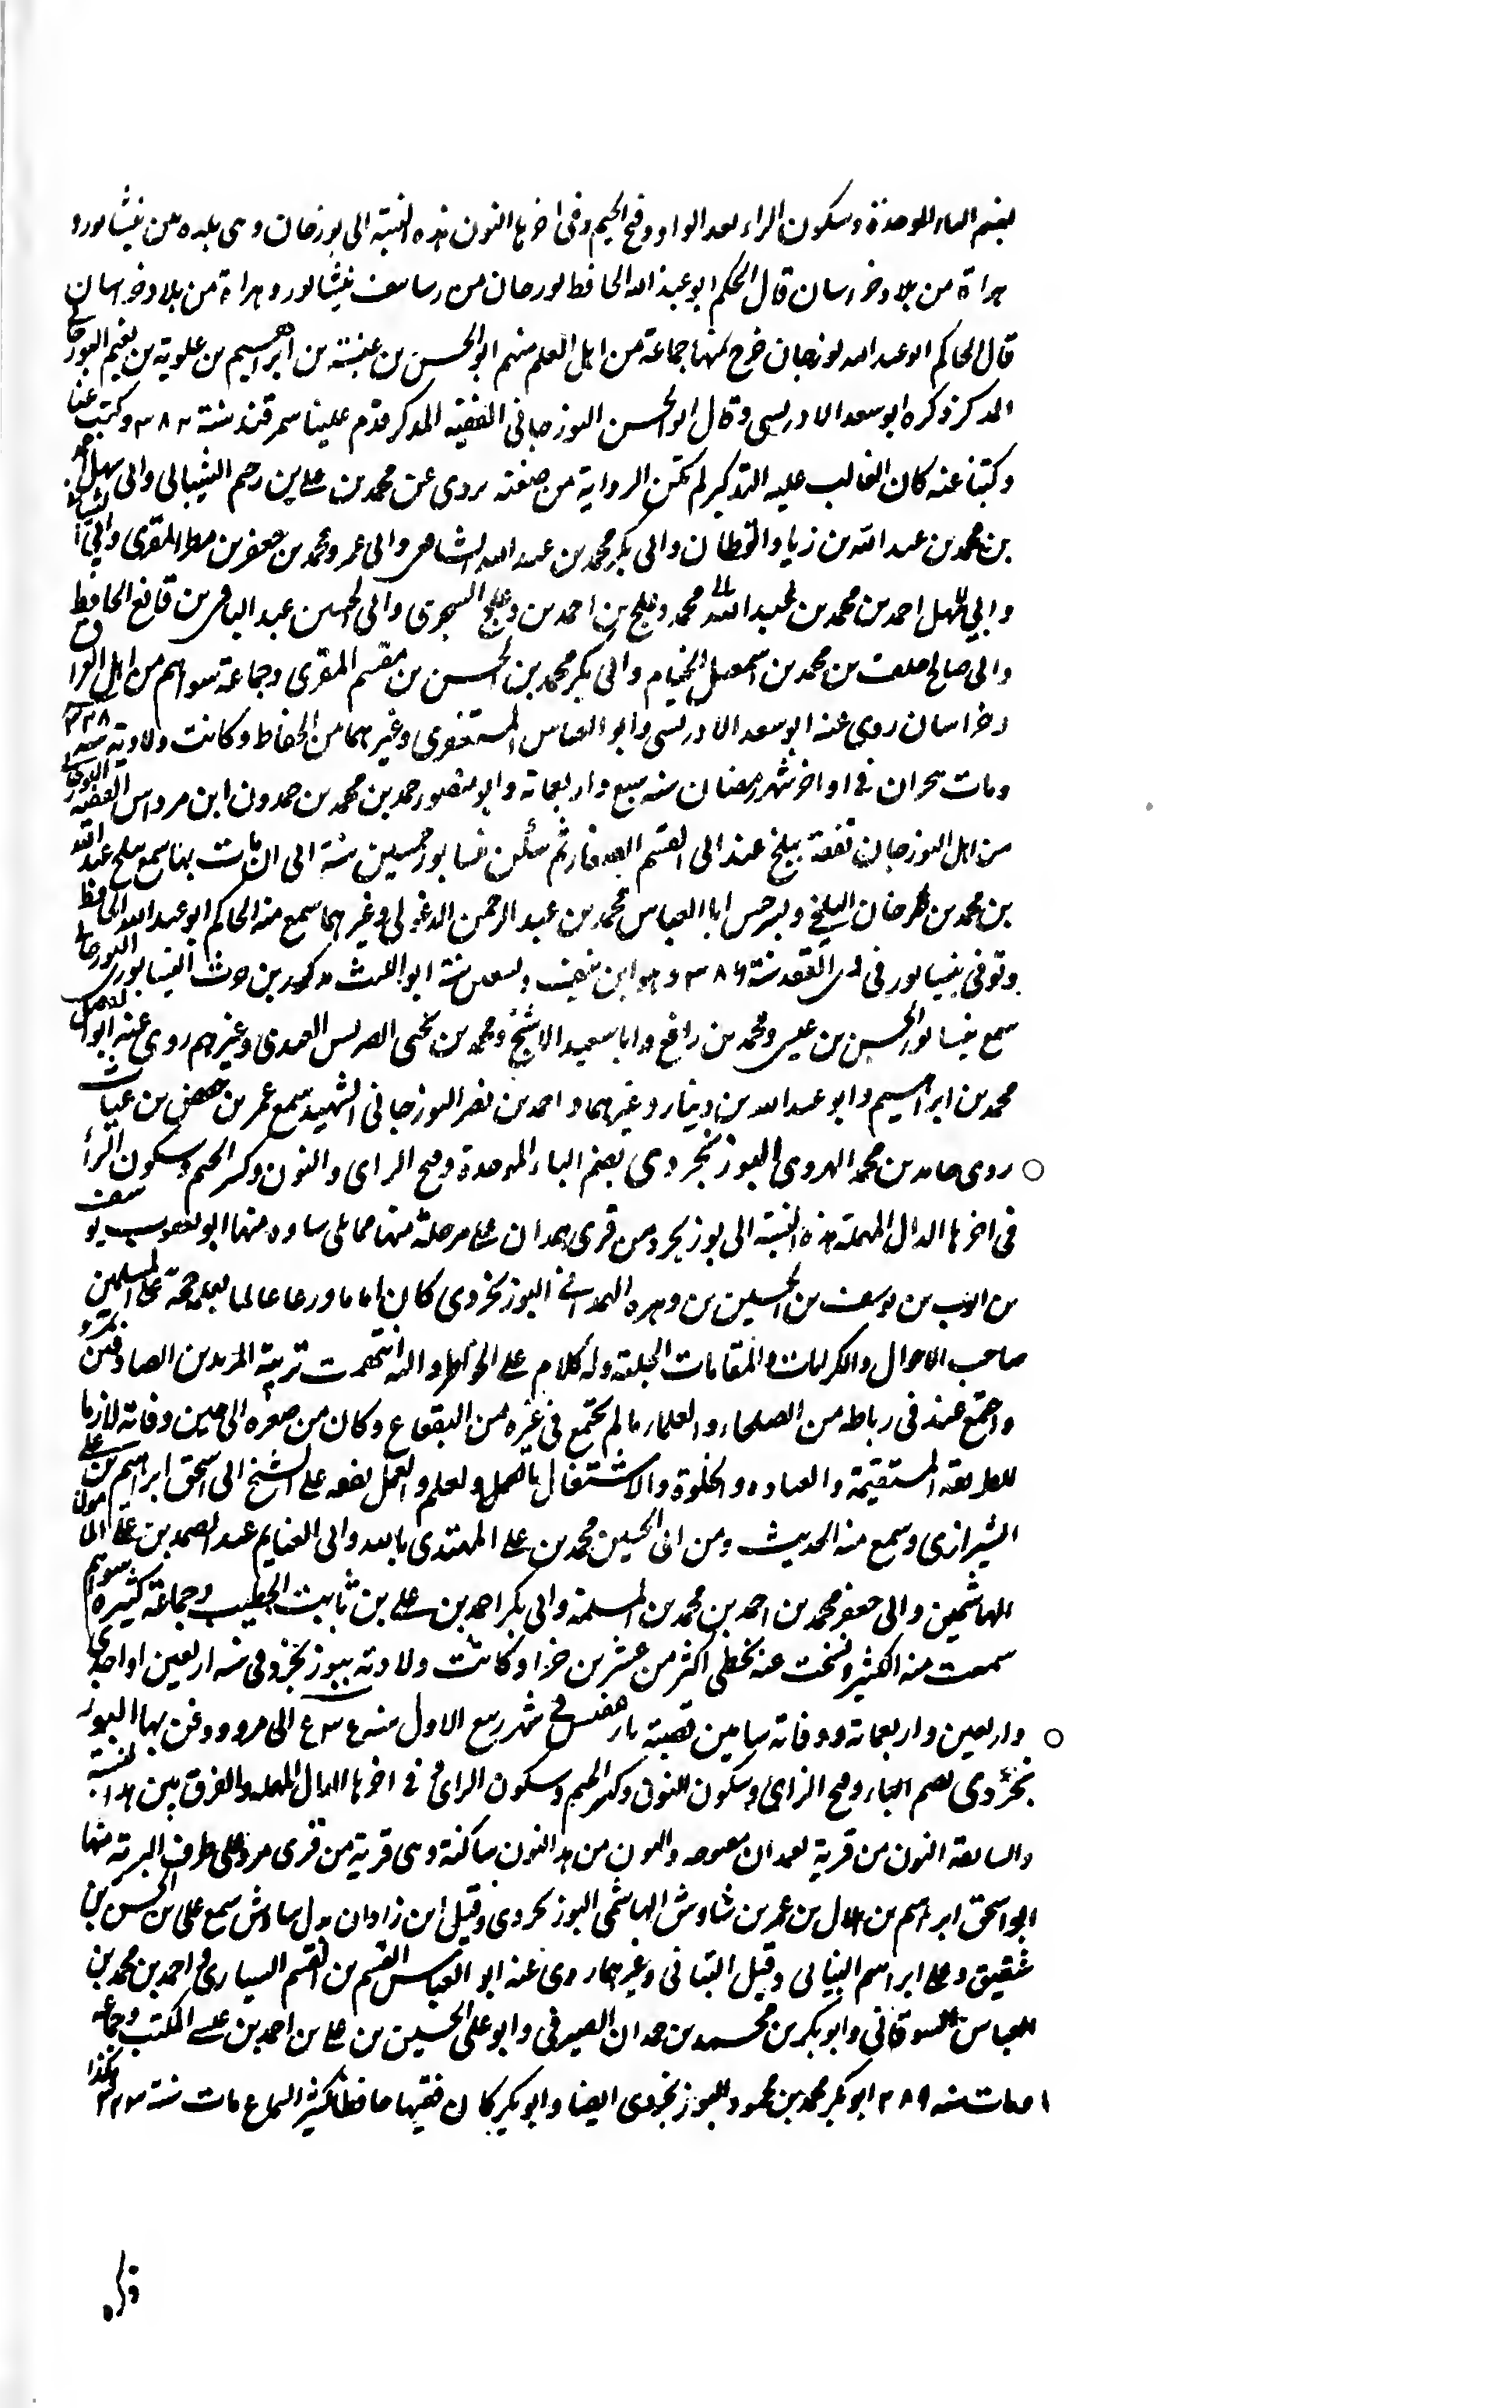 بضم الباء الموحدة وسكون الراء بعد الواو وفتح الجيم وفى اخرها النون هذه النسبة الى بوزجان وهى بلدة بين نيشابور و
هراة من بلاد خراسان قال الحكم ابو عبد الله الحافظ بوزجان من رساتيق نيشابور وهراة من بلاد خراسان
قال الحاكم ابو عبد الله بوزجان خرج منها جماعة من اهل العلم منهم ابو الحسن بن عنبسة بن ابراهيم بن علوية بن نعيم البوزجانى
المذكر ذكره ابو سعد الادريسى وقال ابو الحسن البوزجانى الفقيه المذكر قدم علينا سمرقند سنة ٣٨٢ وكتب عنا
وكتبنا عنه كان الغالب عليه التذكير لم تكن الرواية من صنعته يروى عن محمد بن على بن رحيم الشيبانى وابى سهل احمد
بن محمد بن عبد الله بن زياد القطان وابى بكر محمد بن عبد الله الشافعى وابى عمرو محمد بن جعفر بن مطر المقرى
وابى سهل احمد بن محمد بن عبد الله محمد دعلج بن احمد بن دعلج السجزى وابى الحسين عبد الباقى بن قانع الحافظ
وابى صالح خلف بن محمد بن اسمعيل الخيام وابى بكر محمد بن الحسن بن مقسم المقرى وجماعة سواهم من اهل العراق
وخراسان روى عنه ابو سعد الادريسى وابو العباس المستغفرى وغيرهما من الحفاظ وكانت ولادته سنة ٣٣٨
ومات بحران فى اواخر شهر رمضان سنة سبع واربعمائة وابو منصور حمد بن محمد بن حمدون ابن مرداس الفقيه البوزجانى
من اهل البوزجان تفقه ببلخ عند ابى القسم الصفار ثم سكن نيسابور خمسين سنة الى ان مات بها سمع ببلخ عبد الله
بن محمد بن طرخان البلخى وبسرخس ابا العباس محمد بن عبد الرحمن الدغولى وغيرهما سمع منه الحاكم ابو عبد الله الحافظ
وتوفى بنيسابور فى ذى القعدة سنة ٣٨٦ وهو ابن نيف وتسعين سنة ابو الليث بن حرث النيسابورى البوزجانى
سمع بنيسابور الحسين بن عيسى ومحمد بن رافع وابا سعيد الاشج ومحمد بن يحيى العبدى وغيرهم روى عنه ابو الفضل
محمد بن ابراهيم وابو عبد الله بن دينار وغيرهما واحمد بن نصر البوزجانى الشهيد سمع عمر بن حفص بن غياث
روى حامد بن محمد الهروى البوزنجردى بضم الباء الموحدة وفتح الزاى والنون وكسر الجيم وسكون الرأ
فى اخرها الدال المهملة هذه النسبة الى بوزنجرد من قرى همدان على مرحلة منها مما يلى ساوه منها ابو يعقوب يوسف
بن ايوب بن يوسف بن الحسين بن وهره الهمدانى البوزنجردى كان اماما ورعا عالما بعلمه حجة على المسلمين
صاحب الاحوال والكرامات والمقامات الجليلة وله كلام على الخواطر واليه انتهت تربية المريدين الصادقين
واجتمع عنده فى رباطه من الصلحاء والعلماء ما لم يجتمع فى غيره من البقاع وكان من صغره الى حين وفاته لازما
للطريقة المستقيمة والعبادة والخلوة والاشتغال بالعمل والعلم والعمل تفقه على الشيخ ابى اسحق ابراهيم بن على
الشيرازى وسمع منه الحديث ومن ابى الحسين محمد بن على المهتدى بالله وابى الغنايم عبد الصمد بن على المامون
الهاشميين وابى جعفر محمد بن احمد بن محمد بن المسلمة وابى بكر احمد بن على بن ثابت الخطيب وجماعة كثيرة سواهم
سمعت منه الكثير ونسخت عنه بخطى اكثر من عشرين جزءا وكانت ولادته ببوزنجرد فى سنة اربعين او احدى
واربعين واربعمائة ووفاته بباميين قصبة بادغيس فى شهر ربيع الاول الى مرو ودفن بها البوز
نجردى بضم الباء وفتح الزاى وسكون النون وكسر الجيم وسكون الراى فى اخرها الدال المهملة والفرق بين هذه النسبة
والسابقة النون من قرية بهمدان مفتوحة والنون من هذه النون ساكنة وهى قرية من قرى مرو على طرف البرية منها
ابو اسحق ابراهيم بن هلال بن عمر بن شاوش الهاشمى البوزنجردى وقيل ابن زادان بدل ساوش سمع على بن الحسن بن
شقيق وعلى ابراهيم البنانى وقيل التبانى وغيرهما روى عنه ابو العباس القسم بن القسم السيارى واحمد بن محمد بن
العباس السوقانى وابو بكر بن محمد بن حمدان الصيرفى وابو على الحسين بن على بن احمد بن على المكتب وجماعة
ومات سنة ٢٨٩ ابو بكر محمد بن محمود البوزنجردى ايضا وابو بكر كان فقيها حافظا كثير السماع مات سنة هكذا
ذكره